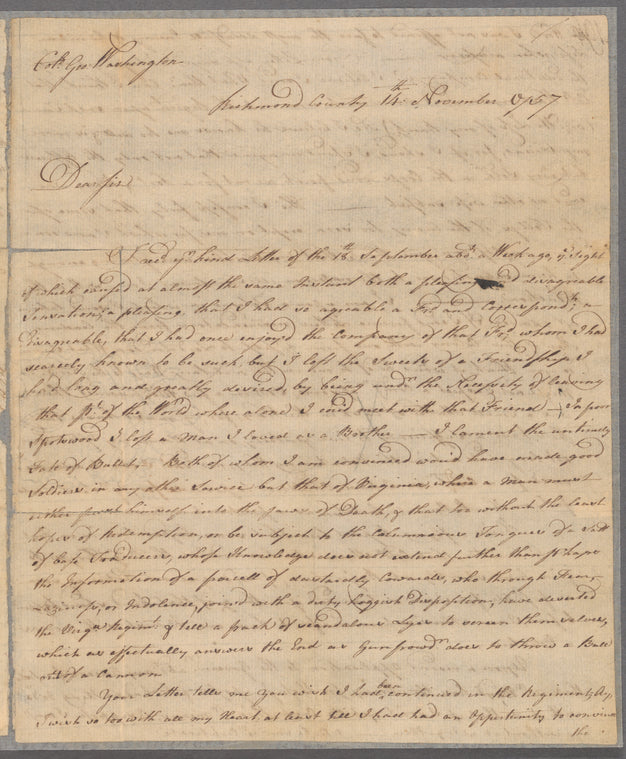 Colo. Geo: Washington
Richmond County 14th. November 1757
Dear Sir
I recd. yr. kind Letter of the 18th. September abt. a Week ago, ye. Sight
of which caused at almost the same Instant both a pleasing and disagreable
Sensation; a pleasing, that I had so agreable a Frd. and Correspondt.; a
disagreable, that I had once enjoy'd the Company of that Frd. whom I had
scarcely known to be such, but I left the Sweets of a Friendship I
had long and greatly desired, by being undr. the Necessity of leaving
that pt. of the World where alone I coud meet with that Friend — In poor
Spotswood I lost a Man I loved as a Brother — I lament the untimely
Fate of Bullet, Both of whom I am convinced woud have made good
Soldiers in any other Service but that of Virginia, where a Man must
either himself into the jaws of Death, & that too without the least
hopes of Redemption, or be subject to the Calumnious Tongues of a Sett
of base Traducers, whose Knowledge does not extend further than phaps
the Information of a parcell of dastardly Cowards, who through Fear,
Laziness, or Indolence, joined with a dirty hoggish disposition, have deserted
the Virga. Regimt. & tell a pack of scandalous Lyes to screen themselves,
which as effectually answers the End as Gunpowdr. does to throw a Ball
out of a Cannon
Your Letter tells me You wish I had been continued in the Regiment,
I wish so too with all my Heart, at least till I had had an Opportunity to convince
the